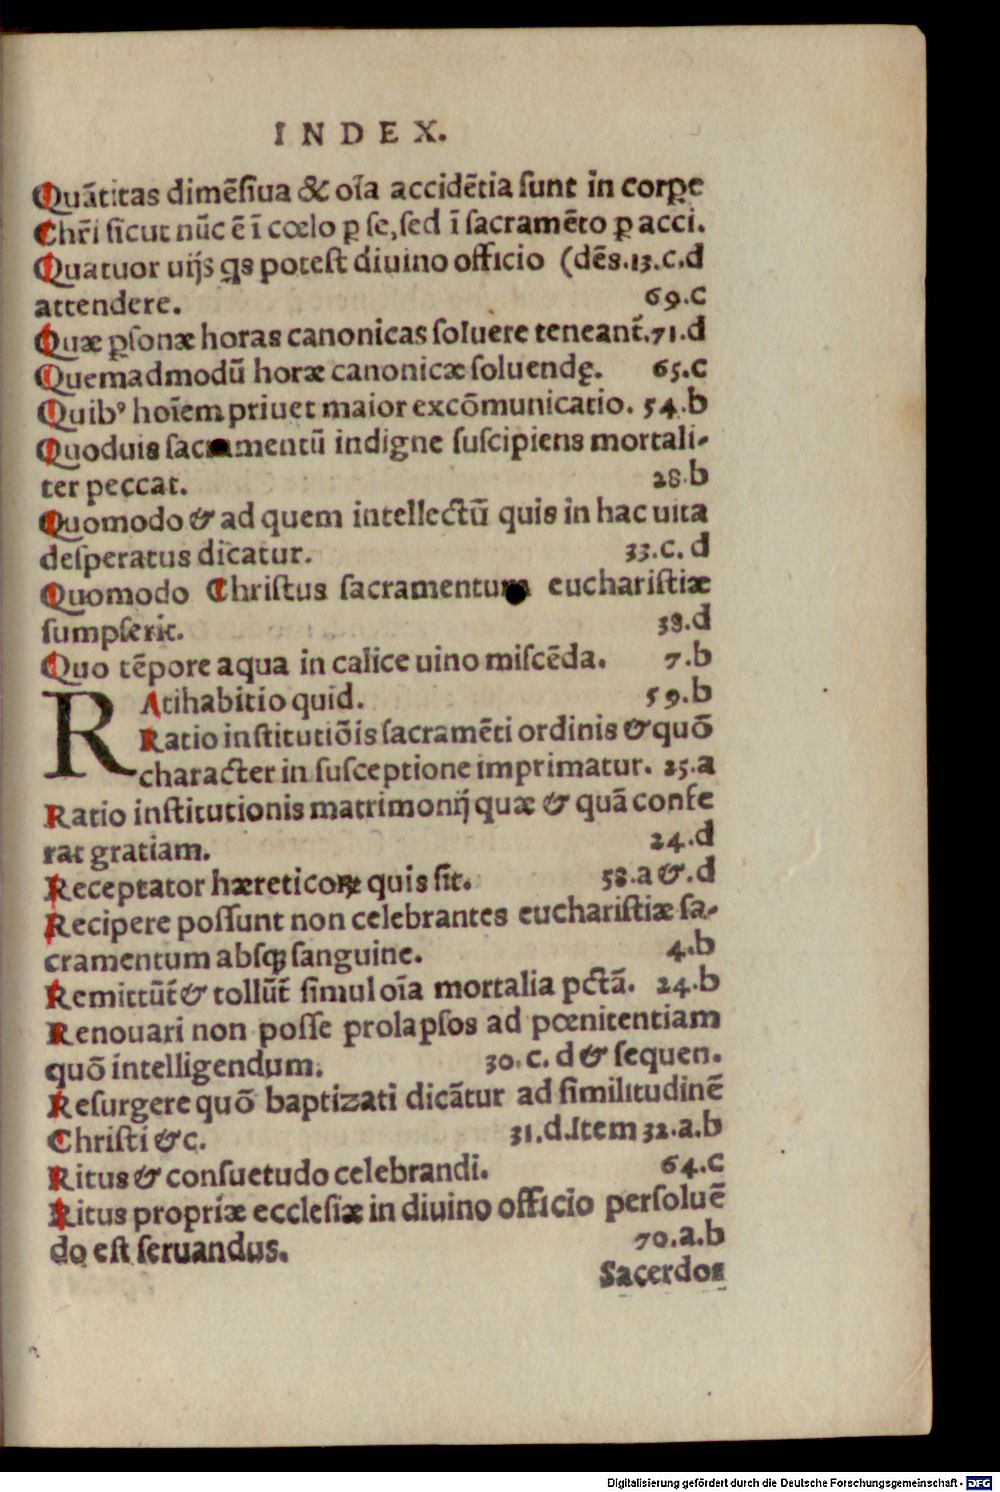 INDEX.
Quãtitas dimẽsiua & oĩa accidẽtia sunt in corꝑe
Chr̃i sicut nũc ẽ ĩ cœlo ꝑ se, sed ĩ sacramẽto ꝑ acci.
Quatuor uijs ꝗs potest diuino officio (dẽs.13.c.d
attendere. 69.c
Quæ ꝑsonæ horas canonicas soluere teneant̃.71.d
Quemadmodũ horæ canonicæ soluendę. 65.c
Quibꝰ hoĩem priuet maior excõmunicatio. 54.b
Quoduis sacramentũ indigne suscipiens mortali-
ter peccat. 28.b
Quomodo & ad quem intellectũ quis in hac uita
desperatus dicatur. 33.c.d
Quomodo Christus sacramentum eucharistiæ
sumpserit. 38.d
Quo tẽpore aqua in calice uino miscẽda. 7.b
RAtihabitio quid. 59.b
Ratio institutiõis sacramẽti ordinis & quõ
character in susceptione imprimatur. 25.a
Ratio institutionis matrimonij quæ & quã confe
rat gratiam. 24.d
Receptator hæreticoꝝ quis sit. 58.a &.d
Recipere possunt non celebrantes eucharistiæ sa-
cramentum absqꝫ sanguine. 4.b
Remittũt̃ & tollũt̃ simul oĩa mortalia pctã. 24.b
Renouari non posse prolapsos ad pœnitentiam
quõ intelligendum. 30.c.d & sequen.
Resurgere quõ baptizati dicãtur ad similitudinẽ
Christi &c. 31.d.Item 32.a.b
Ritus & consuetudo celebrandi. 64.c
Ritus propriæ ecclesiæ in diuino officio persoluẽ
do est seruandus. 70.a.b
Sacerdos
Digitalisierung gefördert durch die Deutsche Forschungsgemeinschaft - DFG